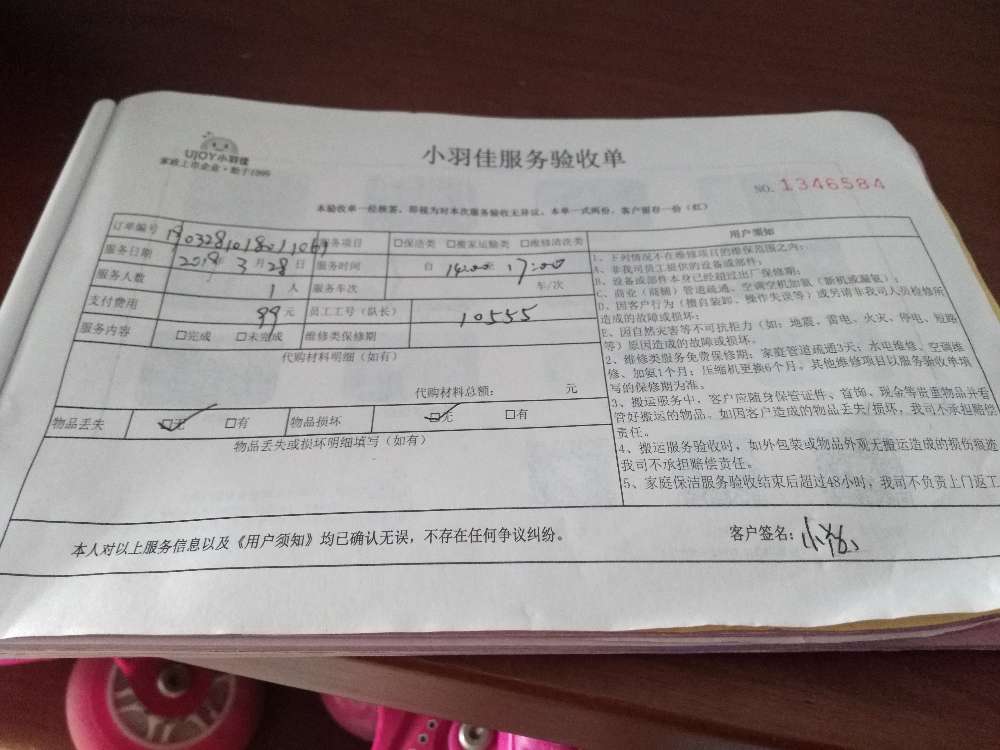 UJOY小羽佳
家政上市企业·始于1999
小羽佳服务验收单
NO. 1346584
本验收单一经核签，即视为对本次服务验收无异议。本单一式两份，客户留存一份（红）
订单编号 服务项目 □保洁类 □搬家运输类 □维修清洗类
服务日期 2019年3月28日 服务时间 自 14:00 至 17:00
服务人数 1人 服务车次 车/次
支付费用 99元 员工工号（队长） 10555
服务内容 □完成 □未完成 维修类保修期
代购材料明细（如有）
代购材料总额： 元
物品丢失 □无 □有 物品损坏 □无 □有
物品丢失或损坏明细填写（如有）
用户须知
1、下列情况不在维修项目的维保范围之内：
A、非我司员工提供的设备或部件；
B、设备或部件本身已经超过出厂保修期；
C、商业（商铺）管道疏通、空调空机加氨（新机或漏氨）；
D、因客户行为（擅自装卸、操作失误等）或另请非我司人员检修所
造成的故障或损坏；
E、因自然灾害等不可抗拒力（如：地震、雷电、火灾、停电、短路
等）原因造成的故障或损坏。
2、维修类服务免费保修期：家庭管道疏通3天；水电维修、空调维
修、加氨1个月；压缩机更换6个月。其他维修项目以服务验收单填
写的保修期为准。
3、搬运服务中，客户应随身保管证件、首饰、现金等贵重物品并看
管好搬运的物品。如因客户造成的物品丢失/损坏，我司不承担赔偿
责任。
4、搬运服务验收时，如外包装或物品外观无搬运造成的损伤痕迹
我司不承担赔偿责任。
5、家庭保洁服务验收结束后超过48小时，我司不负责上门返工
本人对以上服务信息以及《用户须知》均已确认无误，不存在任何争议纠纷。
客户签名：